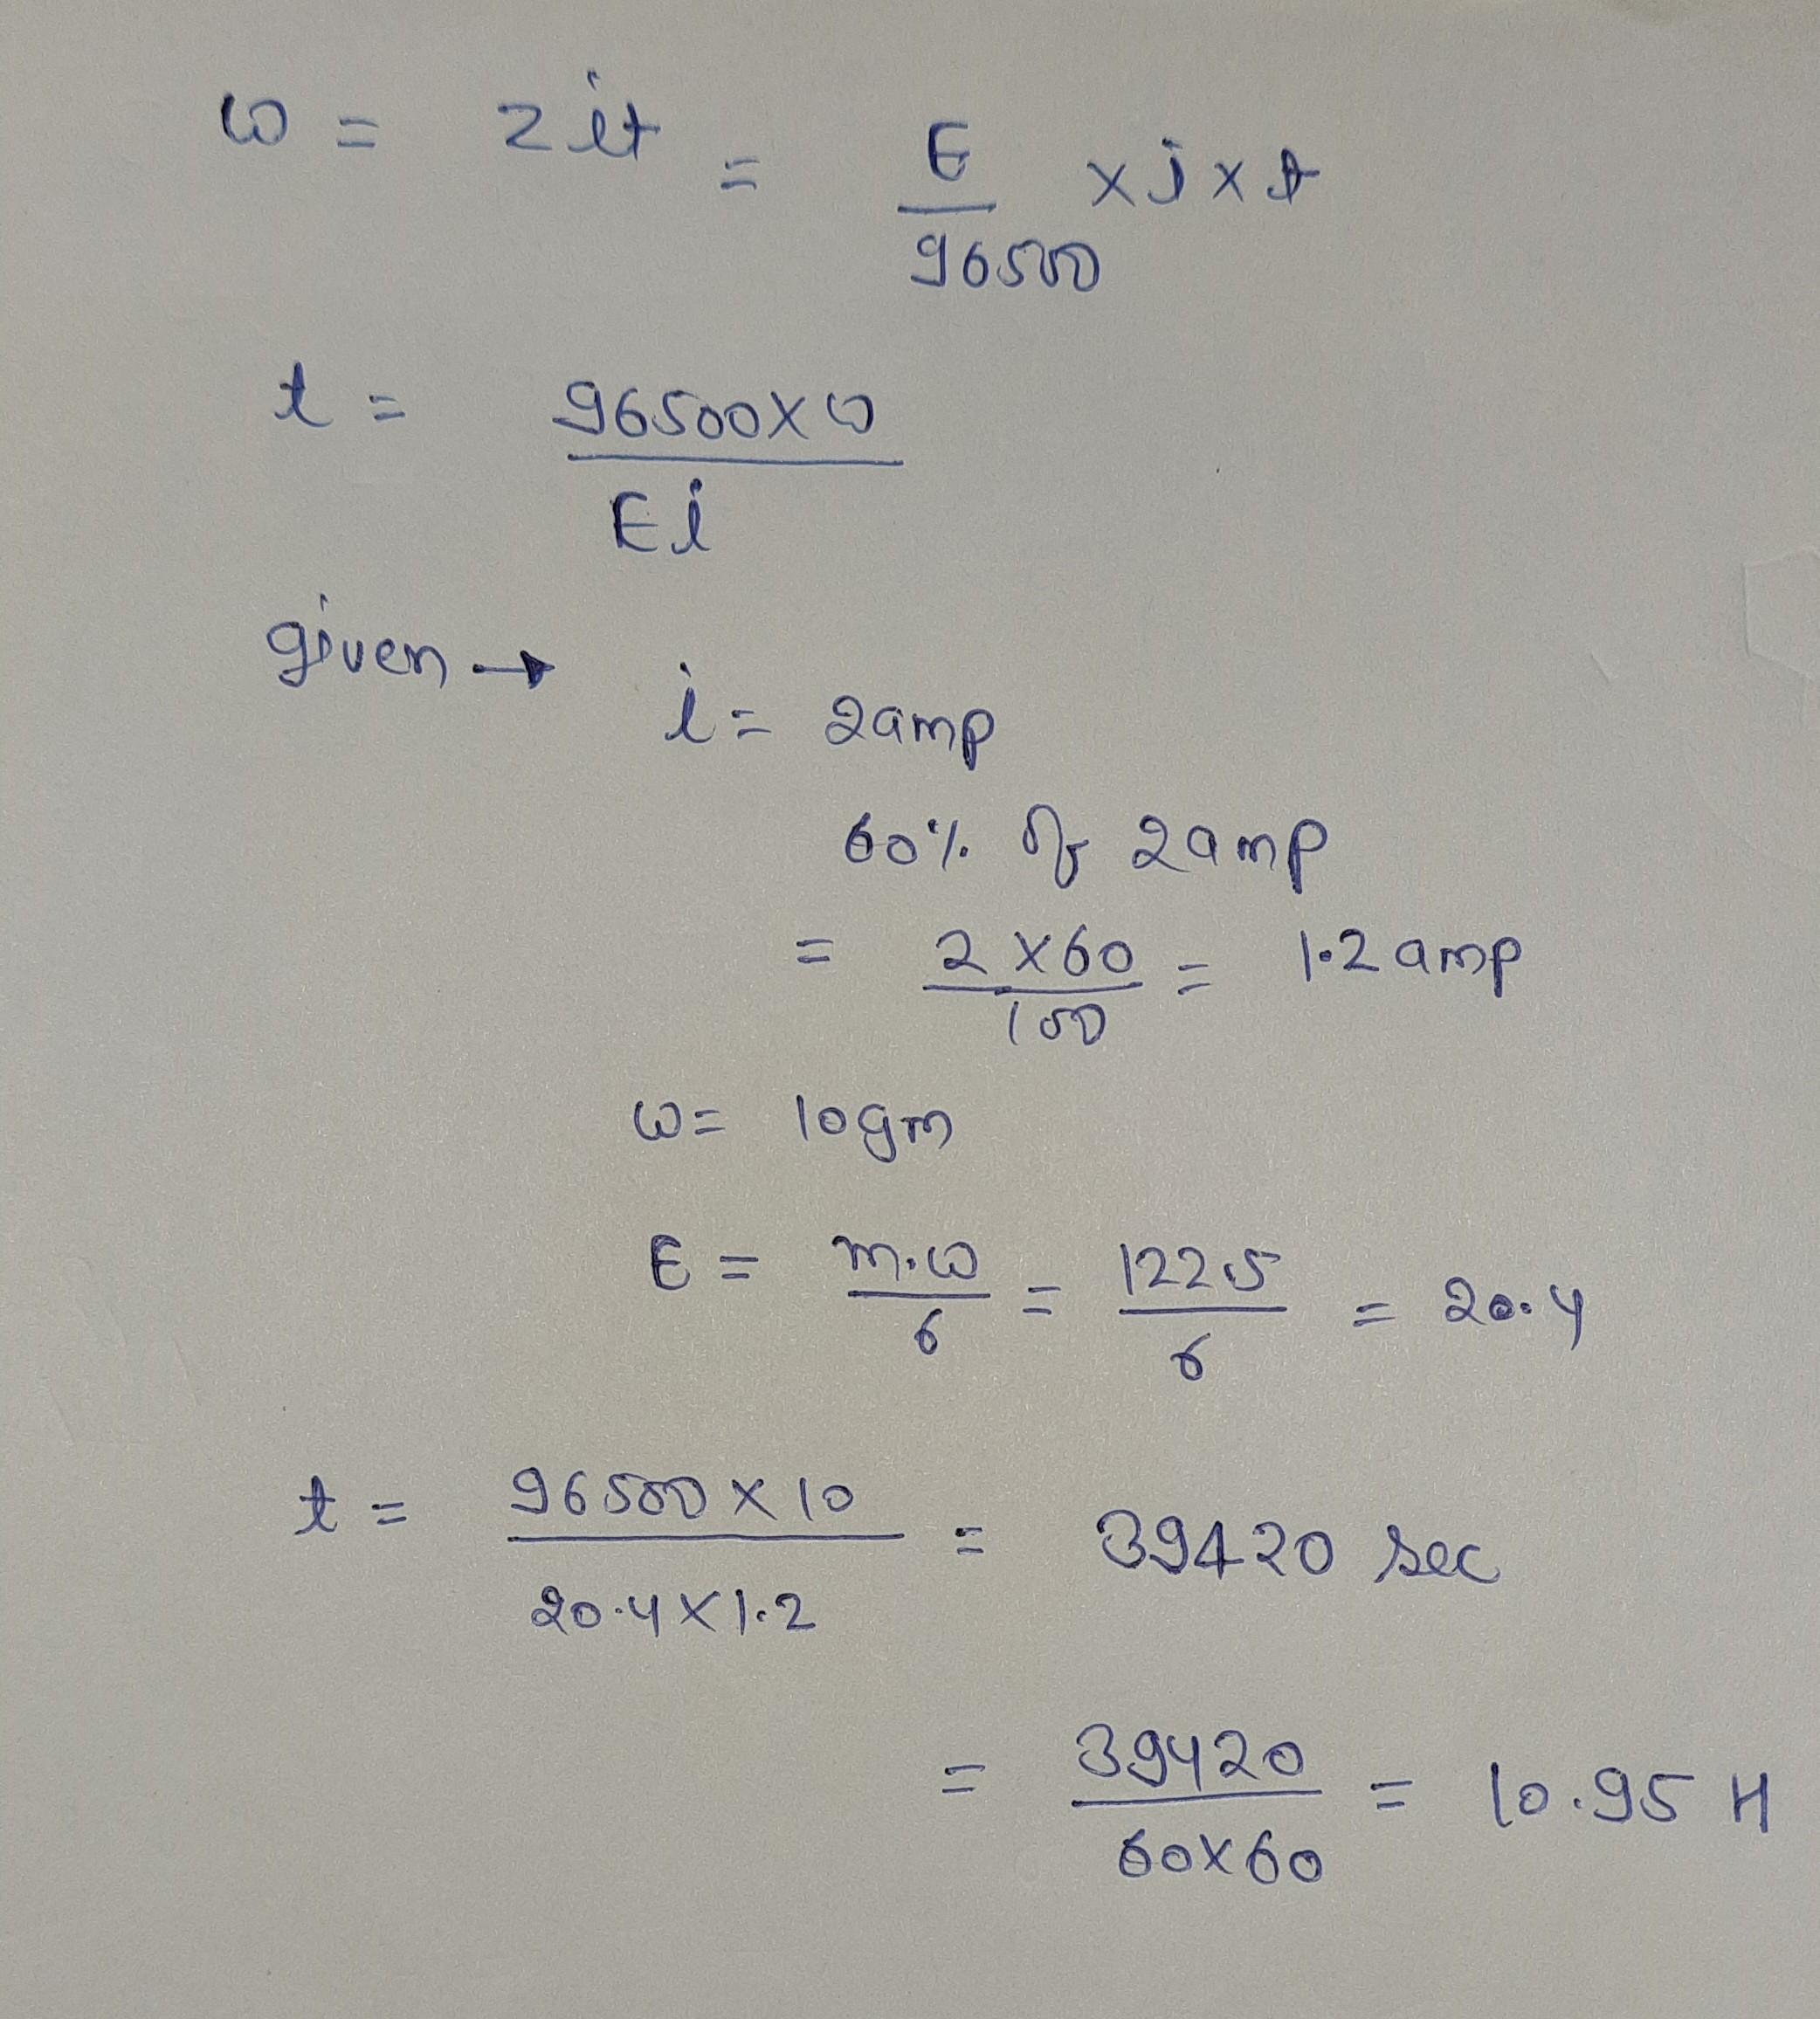 ω = zit = E/96500 × i × t
t = 96500×ω/Ei
given → i = 2amp
60% of 2amp
= 2×60/100 = 1.2 amp
ω = 10gm
E = m.ω/6 = 122.5/6 = 20.4
t = 96500×10/20.4×1.2 = 39420 sec
= 39420/60×60 = 10.95 H